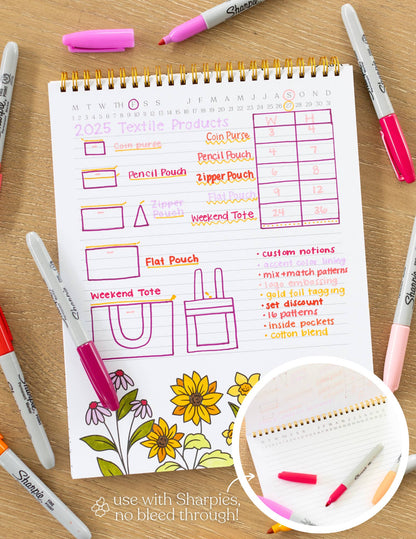 Sharpie
M T W T F S S J F M A M J J A S O N D
1 2 3 4 5 6 7 8 9 10 11 12 13 14 15 16 17 18 19 20 21 22 23 24 25 26 27 28 29 30 31
2025 Textile Products
W H
Coin Purse 3 4
Pencil Pouch 4 7
Zipper Pouch 6 8
Flat Pouch 9 12
Weekend Tote 24 36
Coin purse
Pencil Pouch
Zipper
Pouch
Flat Pouch
Weekend Tote
• custom notions
• accent color lining
• mix+match patterns
• logo embossing
• gold foil tagging
• set discount
• 16 patterns
• inside pockets
• cotton blend
Sharpie
Sharpie
Sharpie
Sharpie
Sharpie
use with Sharpies,
no bleed through!